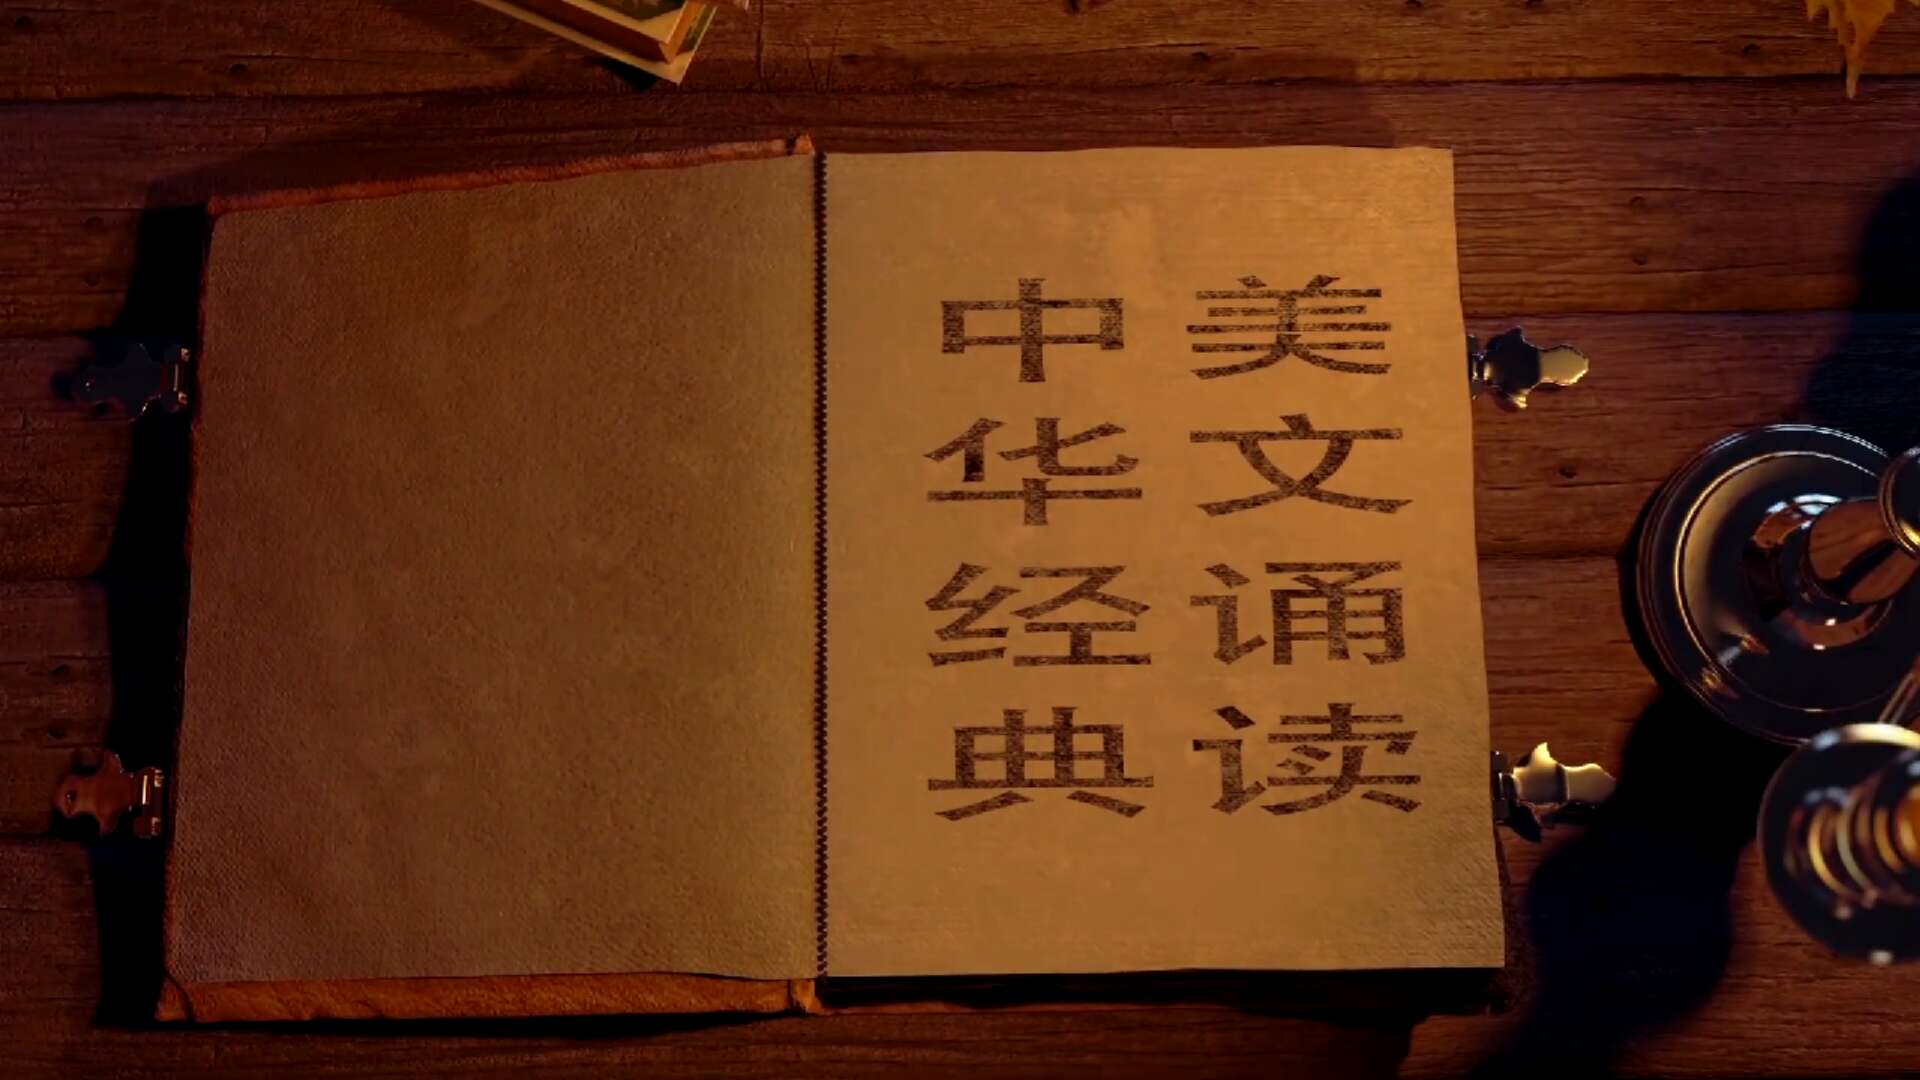 中华经典
美文诵读